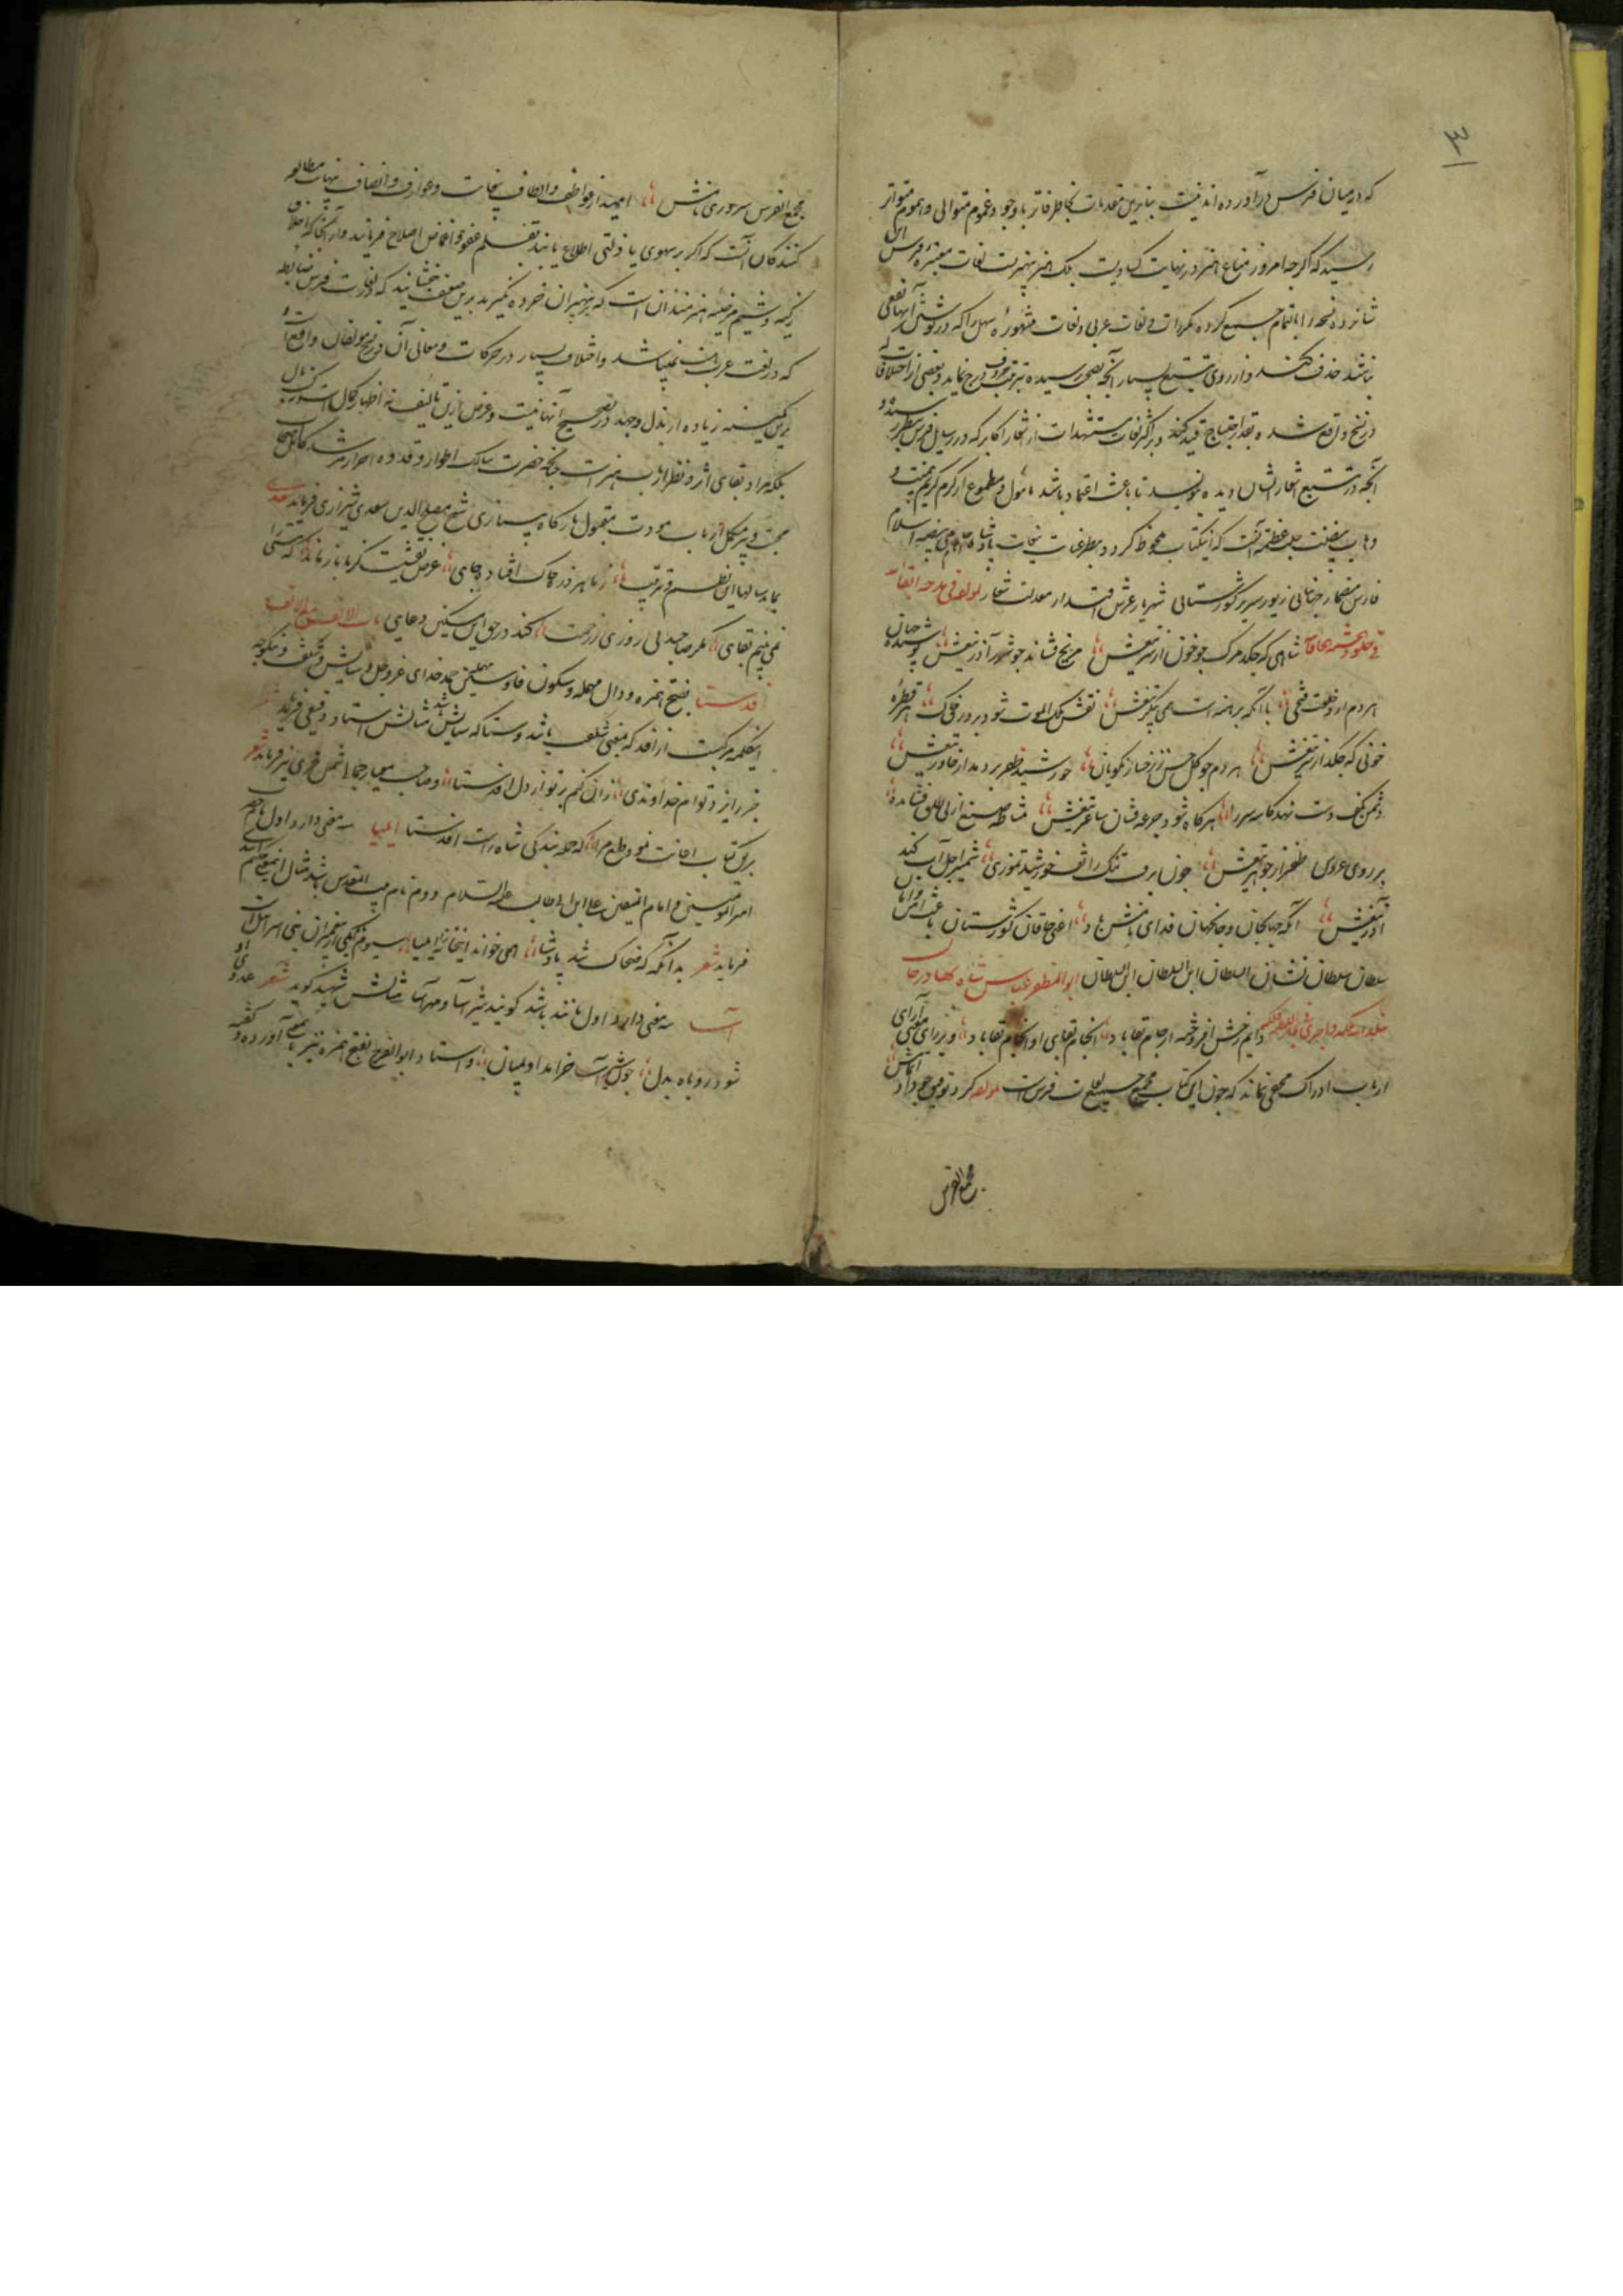 ۳
که در میان فرس درآورده‌اند نیست بنابرین مقدمات بخاطر فاتر با وجود غموم متوالی و هموم متواتر
رسید که اگرچه امروز متاع هنر در نهایت کسادیست بلک هنر بهتر نیست لغات معتبره فرس این
شانزده نسخه را بالتمام جمیع کرده مکررات و لغات عربی و لغات مشهوره سهل را که در نوشتن آنها نفعی
نباشد حذف کند و از روی تتبع بسیار آنچه بصحت رسیده بترتیب حروف درج نماید و بعضی از اختلافات که
در نسخ واقع شده بقدر احتیاج قید کند و بر اکثر لغات مستشهدات از اشعار اکابر که در رسایل فرس مسطور
آنچه در تتبع اشعار ایشان دیده بنویسد تا باعث اعتماد باشد مأمول و مطموع از کرم کریم بیمنت و
وهاب بیضنت جلت عظمته آنست که اینکتاب ملحوظ گردد بنظر عنایت پادشاه حامی بیضه اسلام
فارس مضمار جهانبانی زیور سریر کشورستانی شهریار عرش اقتدار معدلت شعار لمولفه فی مدحه
شاهی که چکد مرگ چو خون از سر تیغش مریخ فشاند چو شرر آذر تیغش پوشنده جهان
هر دم ازو خلعت فتحی با آنکه برهنه است همی پیکر تیغش نقش ملک الموت شود بر ورق خاک هر قطره
خونی که چکد از سر تیغش هر دم چو گل حسن ز رخسار نکویان خورشید ظفر بردمد از خاور تیغش
دشمن بکف دست نهد کاسه سر را هرگاه شود جرعه فشان ساغر تیغش مشاطه صنع ازلی طلق فشانده
بر روی عروس ظفر از جوهر تیغش چون برف تنک راتف خورشید تموزی شمشیر اجل آب کند
آذر تیغش آنکه جهان جان و جان جهان فدای نامش باد اعنی خاقان کشورستان باعث امن و امان
سلطان سلطان نشان السلطان ابن السلطان ابن السلطان ابوالمظفر عباس شاه بهادر خان
خلد الله ملکه دایم رخش افروخته از جام بقا باد انجام بقای او انجام بقا باد و بر رای معنی آرای
ارباب ادراک مخفی نماند که چون این کتاب مجمع جمیع لغات فرس است لمولفه کرد توفیق چو داد اتمامش
مجمع الفرس
مجمع الفرس سروری نامش امید از عواطف و الطاف بیغایت و عوارف و انصاف بینهایت مطالعه
کنندگان آنست که اگر بر سهوی یا ذلتی اطلاع یابند بقلم عفو و اغماض اصلاح فرمایند و از آنجا که اخلاق
زکیه و شیم مرضیه هنرمندان است که بر بیهنران خرده نگیرند برین ضعیف ببخشایند که در لغات فرس ضابطه
که در لغت عربست نمیباشد و اختلاف بسیار در حرکات و معانی آن در نسخ مؤلفان واقع است و
برین کمینه زیاده از بذل و جهد در تصحیح آنها نیست و غرض ازین تألیف نه اظهار کمال است
بلکه مراد بقای اثر و نظر ارباب هنر است چنانکه حضرت سالک اطوار و قدوه احرار مرشد
شیخ مصلح الدین سعدی شیرازی فرماید
بماند سالها این نظم و ترتیب ز ما هر ذره خاک افتاده جایی غرض نقشیست کز ما باز ماند که هستی را
نمی‌بینم بقایی مگر صاحبدلی روزی ز رحمت کند در حق این مسکین دعایی باب الالف مع الالف
افدستا بفتح همزه و دال مهمله و سکون فا و سین مهمله حمد خدای عزوجل و ستایش
اینکلمه مرکبست از افد که بمعنی شگفت باشد و ستا که ستایش باشد مثالش استاد دقیقی فرماید شعر
جز از ایزد توام خداوندی زان کنم بر تو از دل افدستا و صاحب معیار جمالی شمس فخری نیز فرماید شعر
ایلیا سه معنی دارد اول نام حضرت
امیرالمؤمنین و امام المتقین علی ابن ابی‌طالب علیه السلام دوم نام بیت المقدس باشد
فرماید شعر بدانگه که ضحاک شد پادشا همی خواند اینخانه را ایلیا سیوم نام یکی از پیغمبران بنی اسرائیل است
آسا سه معنی دارد اول مانند باشد گویند شیرآسا و مهرآسا مثالش شهید گوید شعر عدوی او
شود روباه بدل چون شیرآسا خرامد او بمیدان و استاد ابوالفرج بفتح همزه نیز باین معنی آورده و گفته